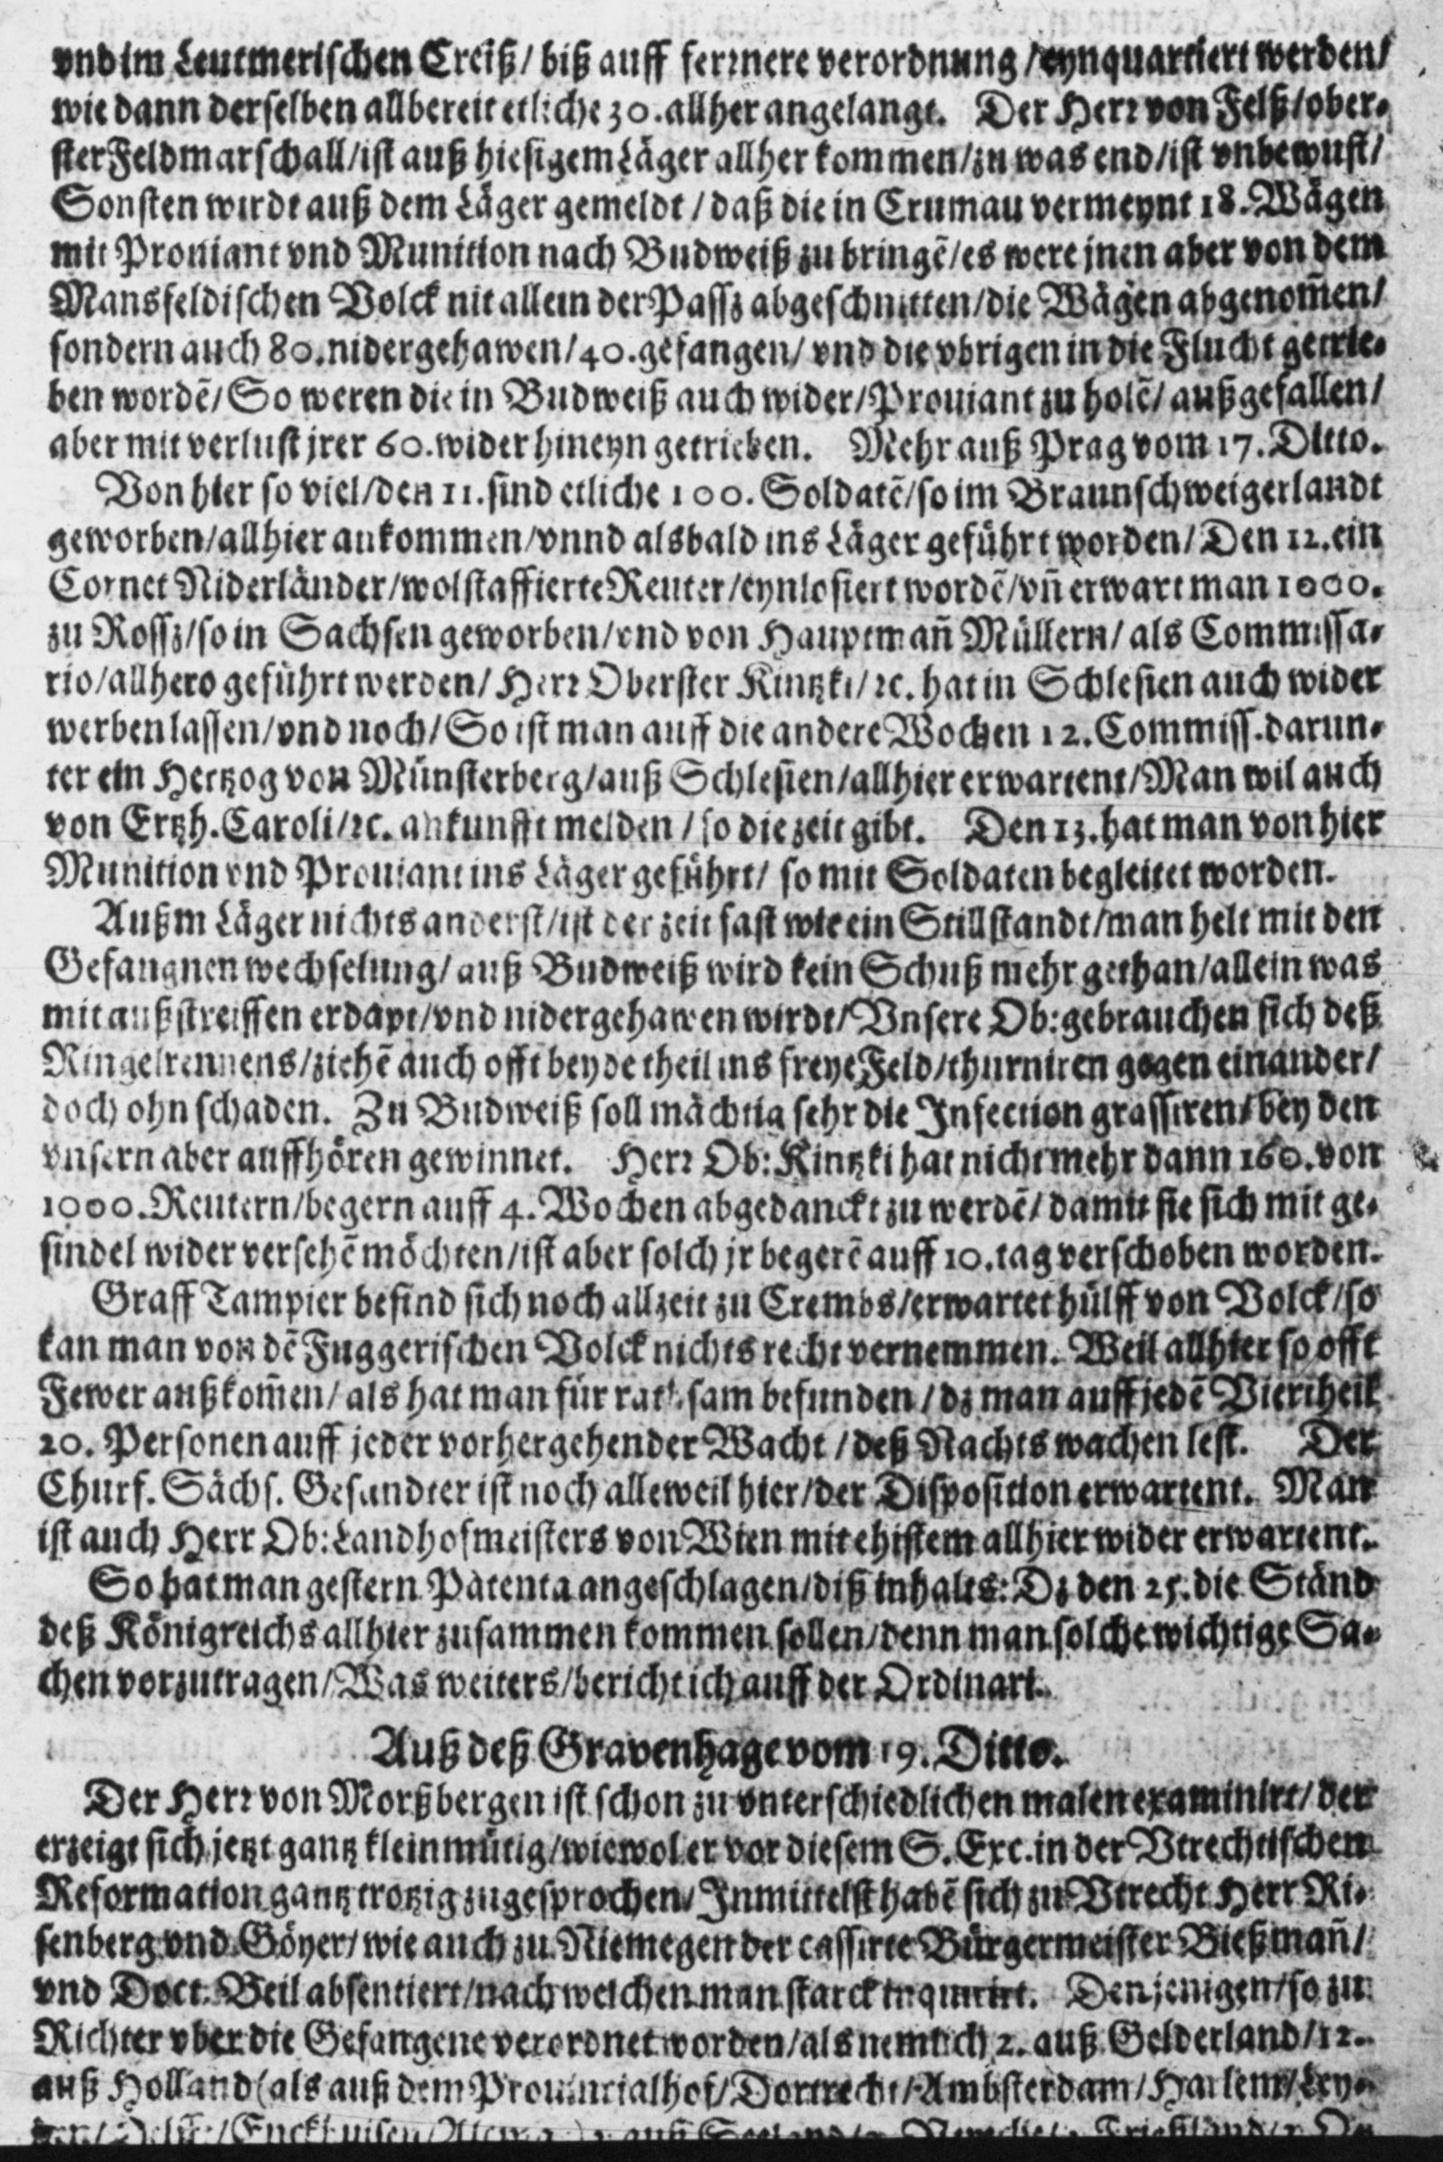 vnd im Leutmerischen Creiß/ biß auff fernnere verordnung /eynquartiert werden/
wie dann derselben allbereit etliche 30. allher angelangt. Der Herr von Felß/ober-
ster Feldmarschall/ist auß hiesigem Läger allher kommen/zu was end/ist vnbewust/
Sonsten wirdt auß dem Läger gemeldt / daß die in Crumau vermeynt 18. Wägen
mit Prouiant vnd Munition nach Budweiß zu bringē/es were jnen aber von dem
Mansfeldischen Volck nit allein der Passz abgeschnitten/die Wägen abgenom̄en/
sondern auch 80. nidergehawen/40. gefangen/ vnd die vbrigen in die Flucht getrie-
ben wordē/ So weren die in Budweiß auch wider/Prouiant zu holē/ außgefallen/
aber mit verlust jrer 60. wider hineyn getrieben. Mehr auß Prag vom 17. Ditto.
Von hier so viel/den 11. sind etliche 100. Soldatē/so im Braunschweigerlandt
geworben/allhier ankommen/vnnd alsbald ins Läger geführt worden/ Den 12. ein
Cornet Niderländer/wolstaffierte Reuter/eynlosiert wordē/vn̄ erwart man 1000.
zu Rossz/so in Sachsen geworben/vnd von Hauptman̄ Müllern/ als Commissa-
rio/allhero geführt werden/ Herr Oberster Kintzki/ꝛc. hat in Schlesien auch wider
werben lassen/vnd noch/ So ist man auff die andere Wochen 12. Commiss. darun-
ter ein Hertzog von Münsterberg/auß Schlesien/allhier erwartent/Man wil auch
von Ertzh. Caroli/ꝛc. ankunfft melden / so die zeit gibt. Den 13. hat man von hier
Munition vnd Prouiant ins Läger geführt/ so mit Soldaten begleitet worden.
Außm Läger nichts anderst/ist der zeit fast wie ein Stillstandt/man helt mit den
Gefangnen wechselung/ auß Budweiß wird kein Schuß mehr gethan/allein was
mit außstreiffen erdapt/vnd nidergehawen wirdt/ Vnsere Ob: gebrauchen sich deß
Ringelrennens/ziehē auch offt beyde theil ins freye Feld/thurniren gegen einander/
doch ohn schaden. Zu Budweiß soll mächtig sehr die Infection grassiren/ bey den
vnsern aber auffhören gewinnet. Herr Ob: Kintzki hat nicht mehr dann 160. von
1000. Reutern/begern auff 4. Wochen abgedanckt zu werdē/ damit sie sich mit ge-
sindel wider versehē möchten/ist aber solch jr begerē auff 10. tag verschoben worden.
Graff Tampier befind sich noch allzeit zu Crembs/erwartet hülff von Volck/so
kan man von dē Fuggerischen Volck nichts recht vernemmen. Weil allhier so offt
Fewer außkom̄en/ als hat man für rathsam befunden / dz man auff jedē Viertheil
20. Personen auff jeder vorhergehender Wacht / deß Nachts wachen lest. Der
Churf. Sächs. Gesandter ist noch alleweil hier/der Disposition erwartent. Man
ist auch Herr Ob: Landhofmeisters von Wien mit ehistem allhier wider erwartent.
So hat man gestern Patenta angeschlagen/diß inhalts: Dz den 25. die Ständ
deß Königreichs allhier zusammen kommen sollen/denn man solche wichtige Sa-
chen vorzutragen/Was weiters/bericht ich auff der Ordinari.
Auß deß Gravenhage vom 19. Ditto.
Der Herr von Morßbergen ist schon zu vnterschiedlichen malen examinirt/ der
erzeigt sich jetzt gantz kleinmütig/wiewol er vor diesem S. Exc. in der Vtrechtischen
Reformation gantz trotzig zugesprochen/ Inmittelst habē sich zu Vtrecht Herr Ri-
senberg vnd Göyer/ wie auch zu Niemegen der cassirte Bürgermeister Bießman̄/
vnd Doct. Beil absentiert/nach welchen man starck inquirirt. Den jenigen/so zu
Richter vber die Gefangene verordnet worden/als nemlich 2. auß Gelderland/12.
auß Holland (als auß dem Prouincialhof/ Dortrecht/ Ambsterdam/ Harlem/ Ley-
den/ Delfft/ Enckhuisen/ auß Seeland/